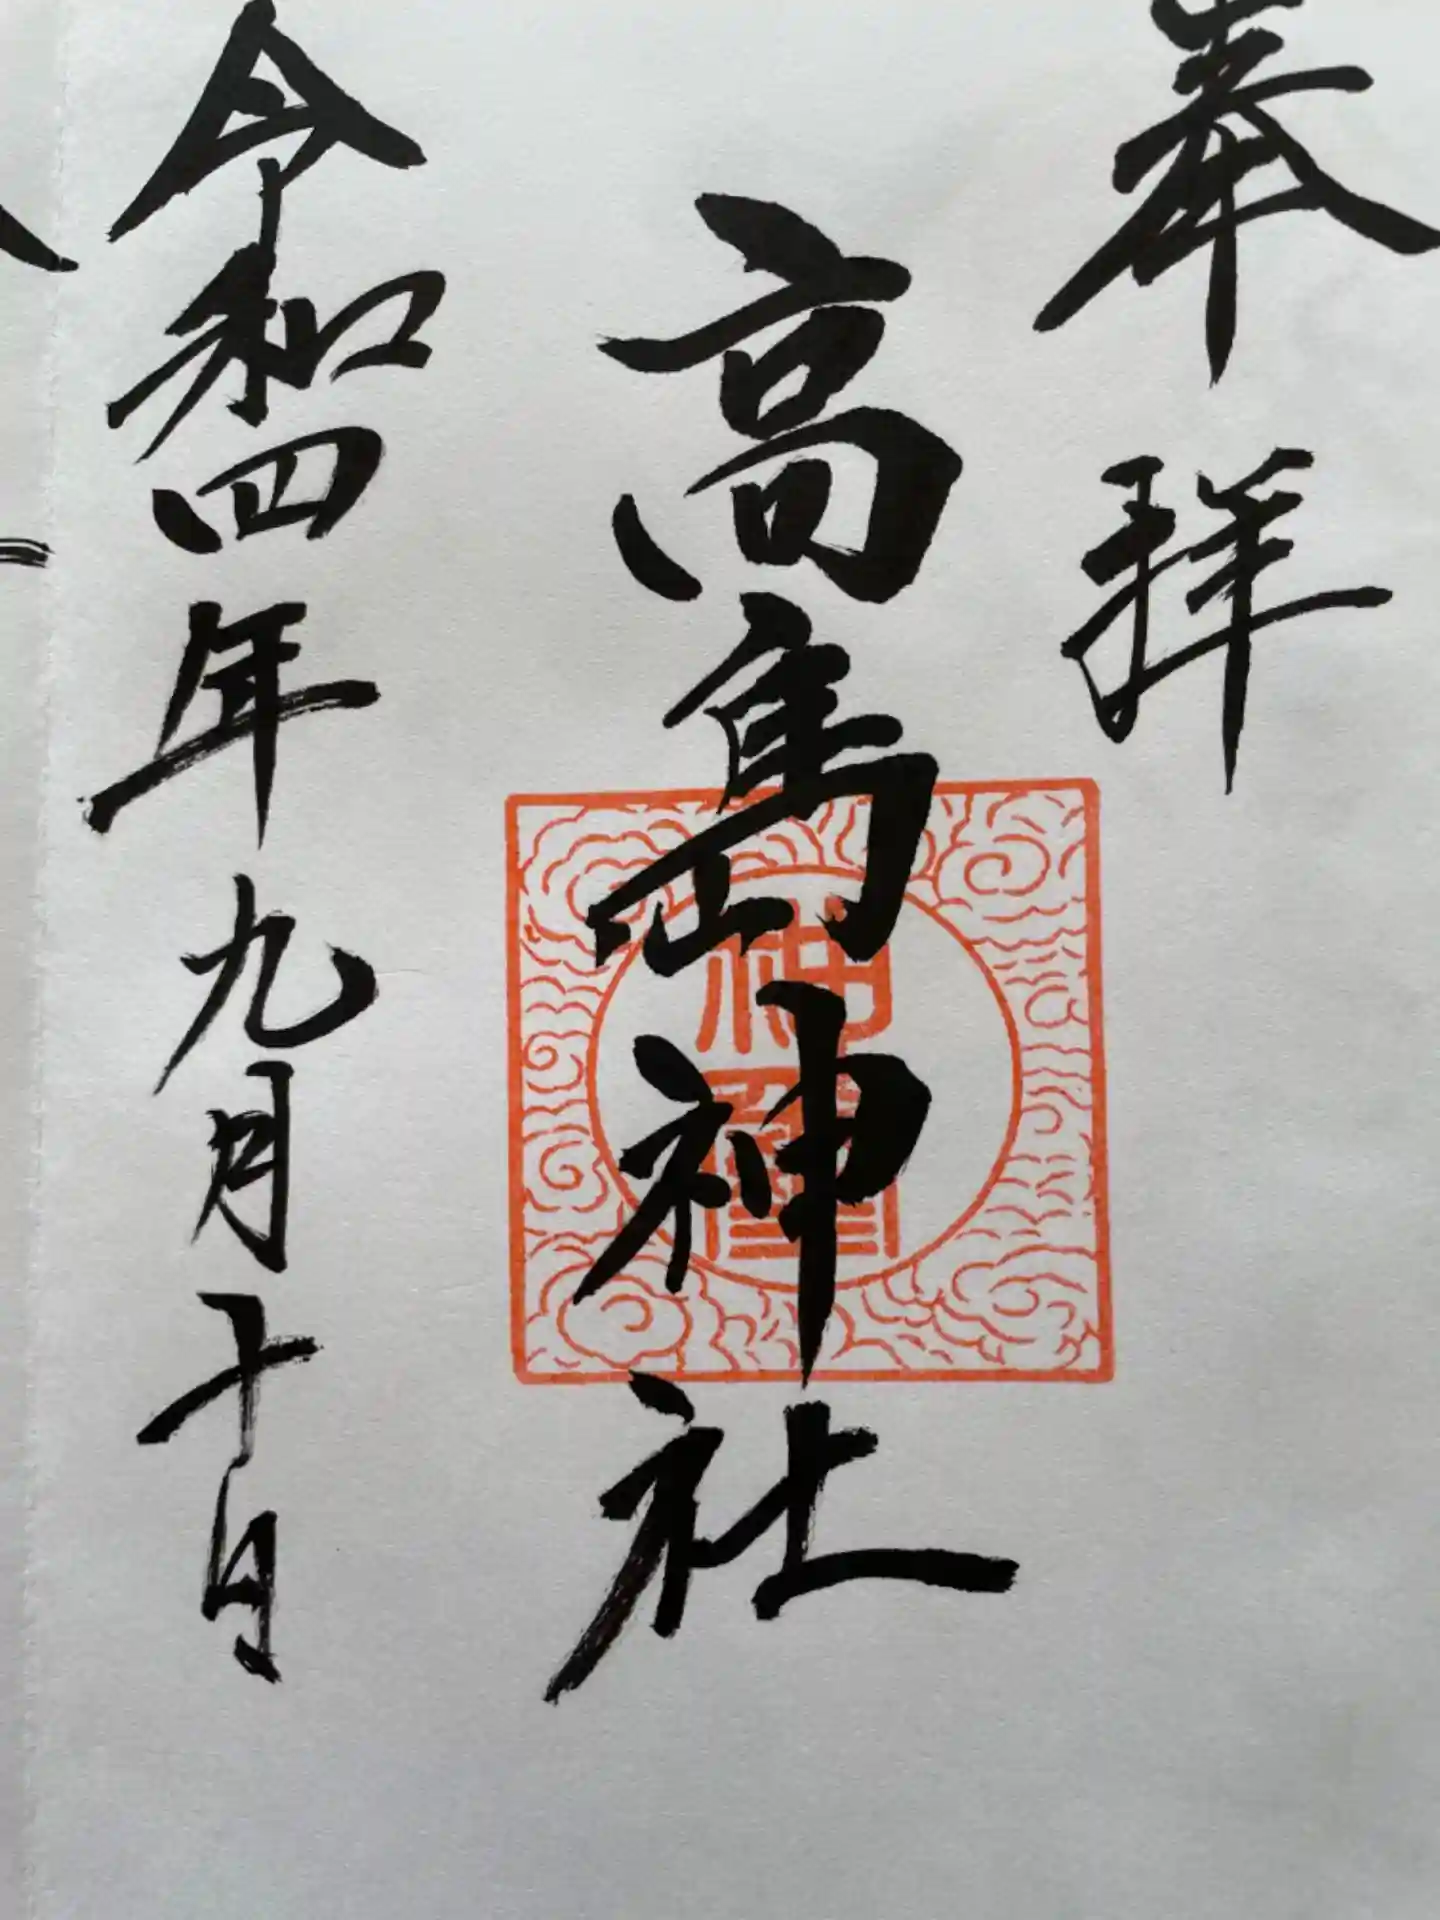 奉拝
高嶌神社
令和四年九月十日